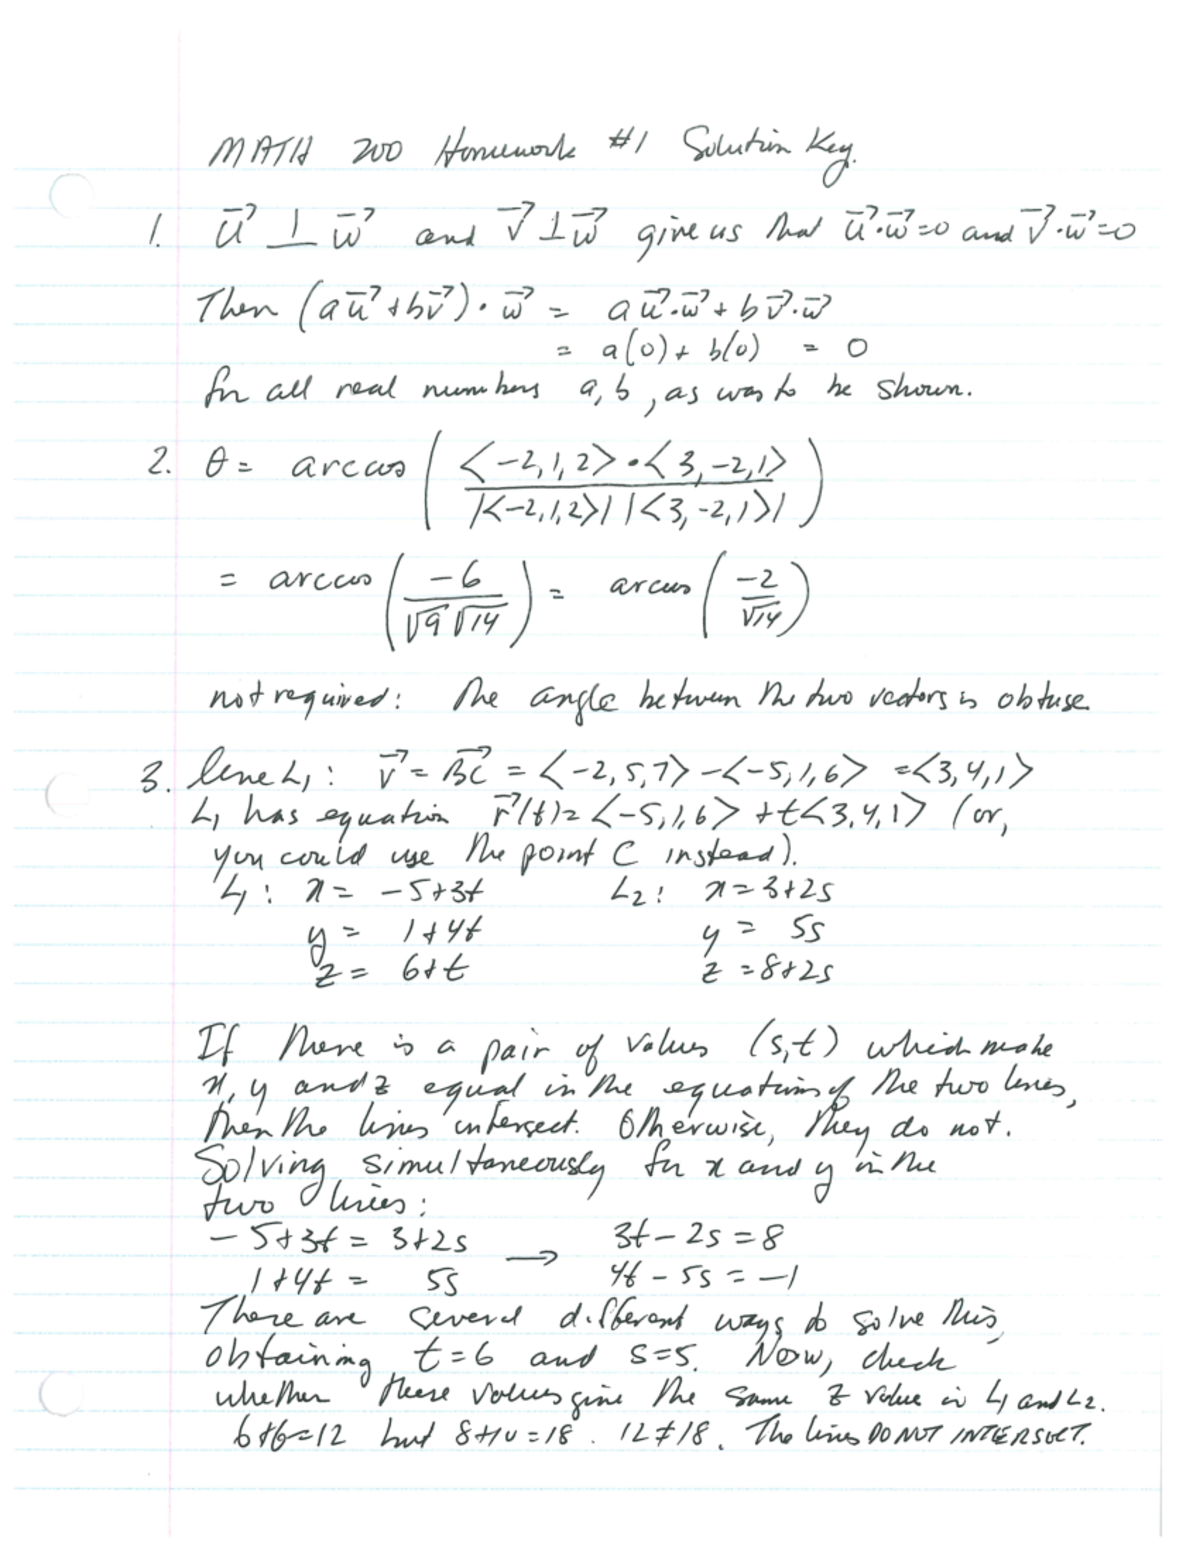 MATH 200 Homework #1 Solution Key.
1. u⃗ ⊥ w⃗ and v⃗ ⊥ w⃗ give us that u⃗·w⃗=0 and v⃗·w⃗=0
Then (au⃗+bv⃗)·w⃗ = au⃗·w⃗ + bv⃗·w⃗
= a(0) + b(0) = 0
for all real numbers a, b, as was to be shown.
2. θ = arccos ( <-2,1,2>·<3,-2,1> / |<-2,1,2>| |<3,-2,1>| )
= arccos ( -6 / √9 √14 ) = arccos ( -2 / √14 )
not required: The angle between the two vectors is obtuse.
3. line L₁: v⃗ = BC⃗ = <-2,5,7> - <-5,1,6> = <3,4,1>
L₁ has equation r⃗(t) = <-5,1,6> + t<3,4,1> (or,
you could use the point C instead).
L₁: x = -5+3t L₂: x = 3+2s
y = 1+4t y = 5s
z = 6+t z = 8+2s
If there is a pair of values (s,t) which make
x, y and z equal in the equations of the two lines,
then the lines intersect. Otherwise, they do not.
Solving simultaneously for x and y in the
two lines:
-5+3t = 3+2s → 3t-2s = 8
1+4t = 5s 4t-5s = -1
There are several different ways to solve this,
obtaining t=6 and s=5. Now, check
whether these values give the same z value in L₁ and L₂.
6+6=12 but 8+10=18. 12≠18. The lines DO NOT INTERSECT.